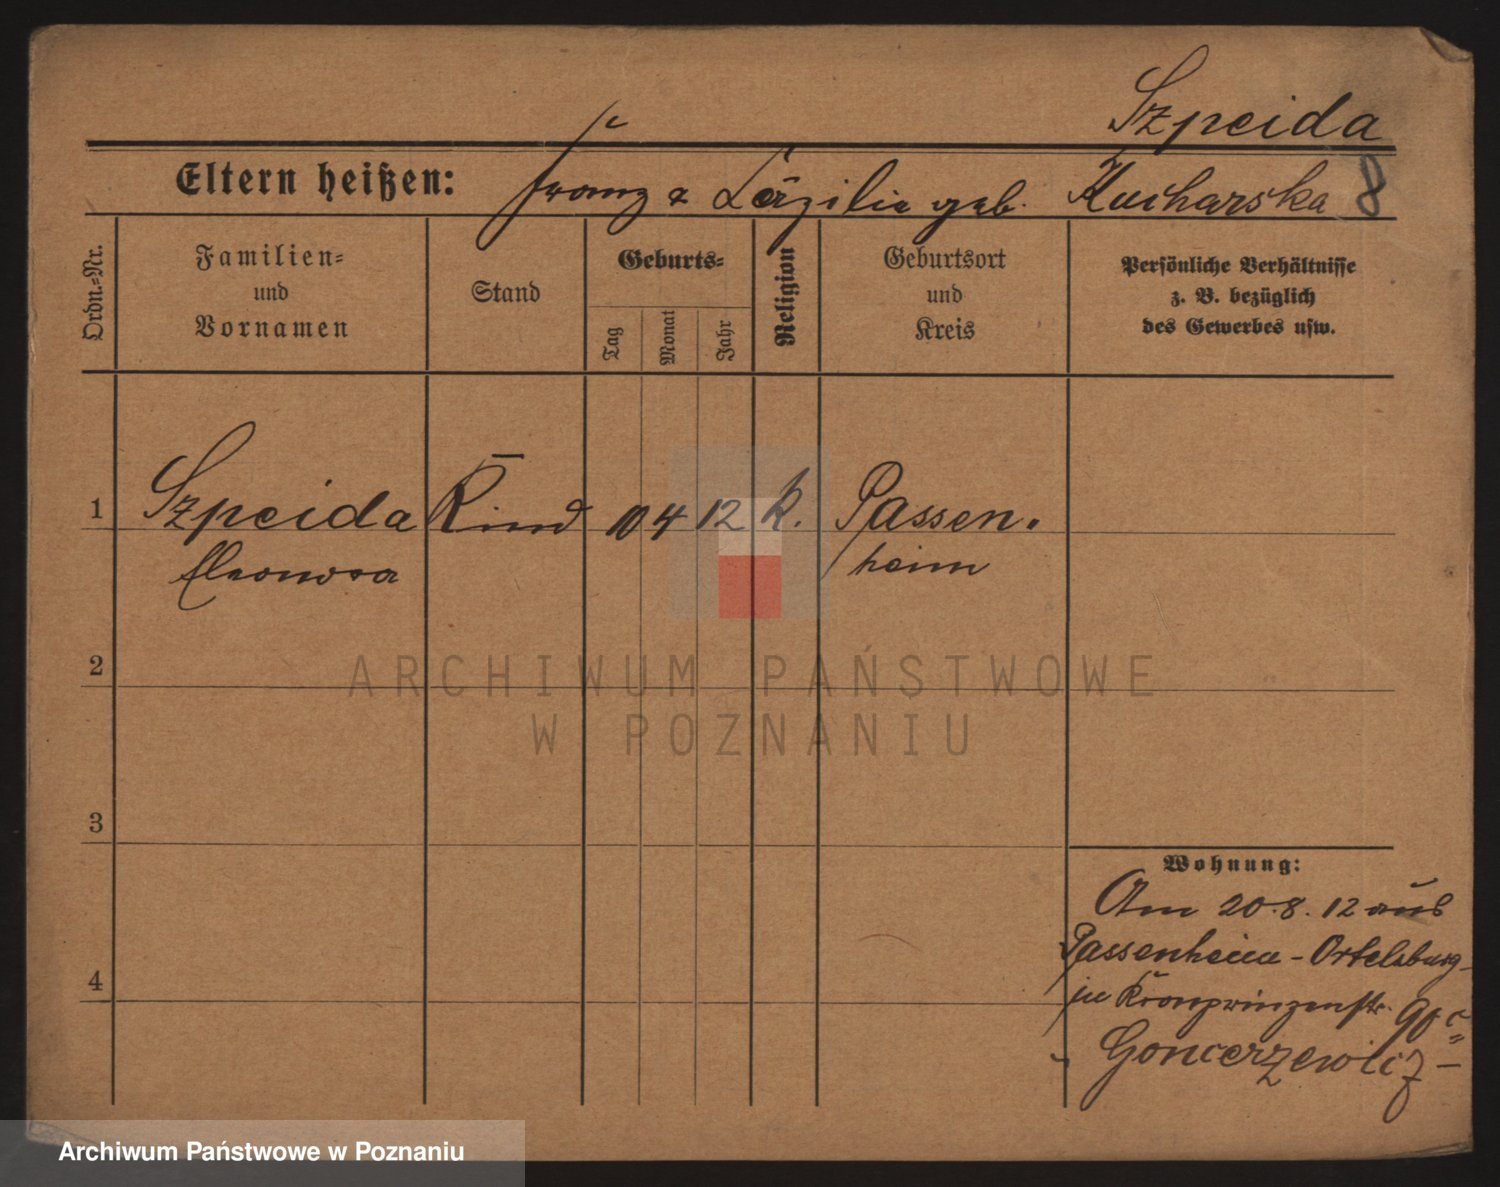 Szpeida
Eltern heißen: Franz & Cäzilie geb. Kucharska 8
Ordn.-Nr.
Familien-
und
Vornamen
Stand
Geburts-
Tag
Monat
Jahr
Religion
Geburtsort
und
Kreis
Persönliche Verhältnisse
z. B. bezüglich
des Gewerbes usw.
1 Szpeida Kind 10 4 12 k. Passen-
Eleonora heim
2
ARCHIWUM PAŃSTWOWE
W POZNANIU
3
Wohnung:
Am 20.8.12 aus
Passenheim - Ortelsburg
4
in Kronprinzenstr. 90
Goncerzewicz
Archiwum Państwowe w Poznaniu